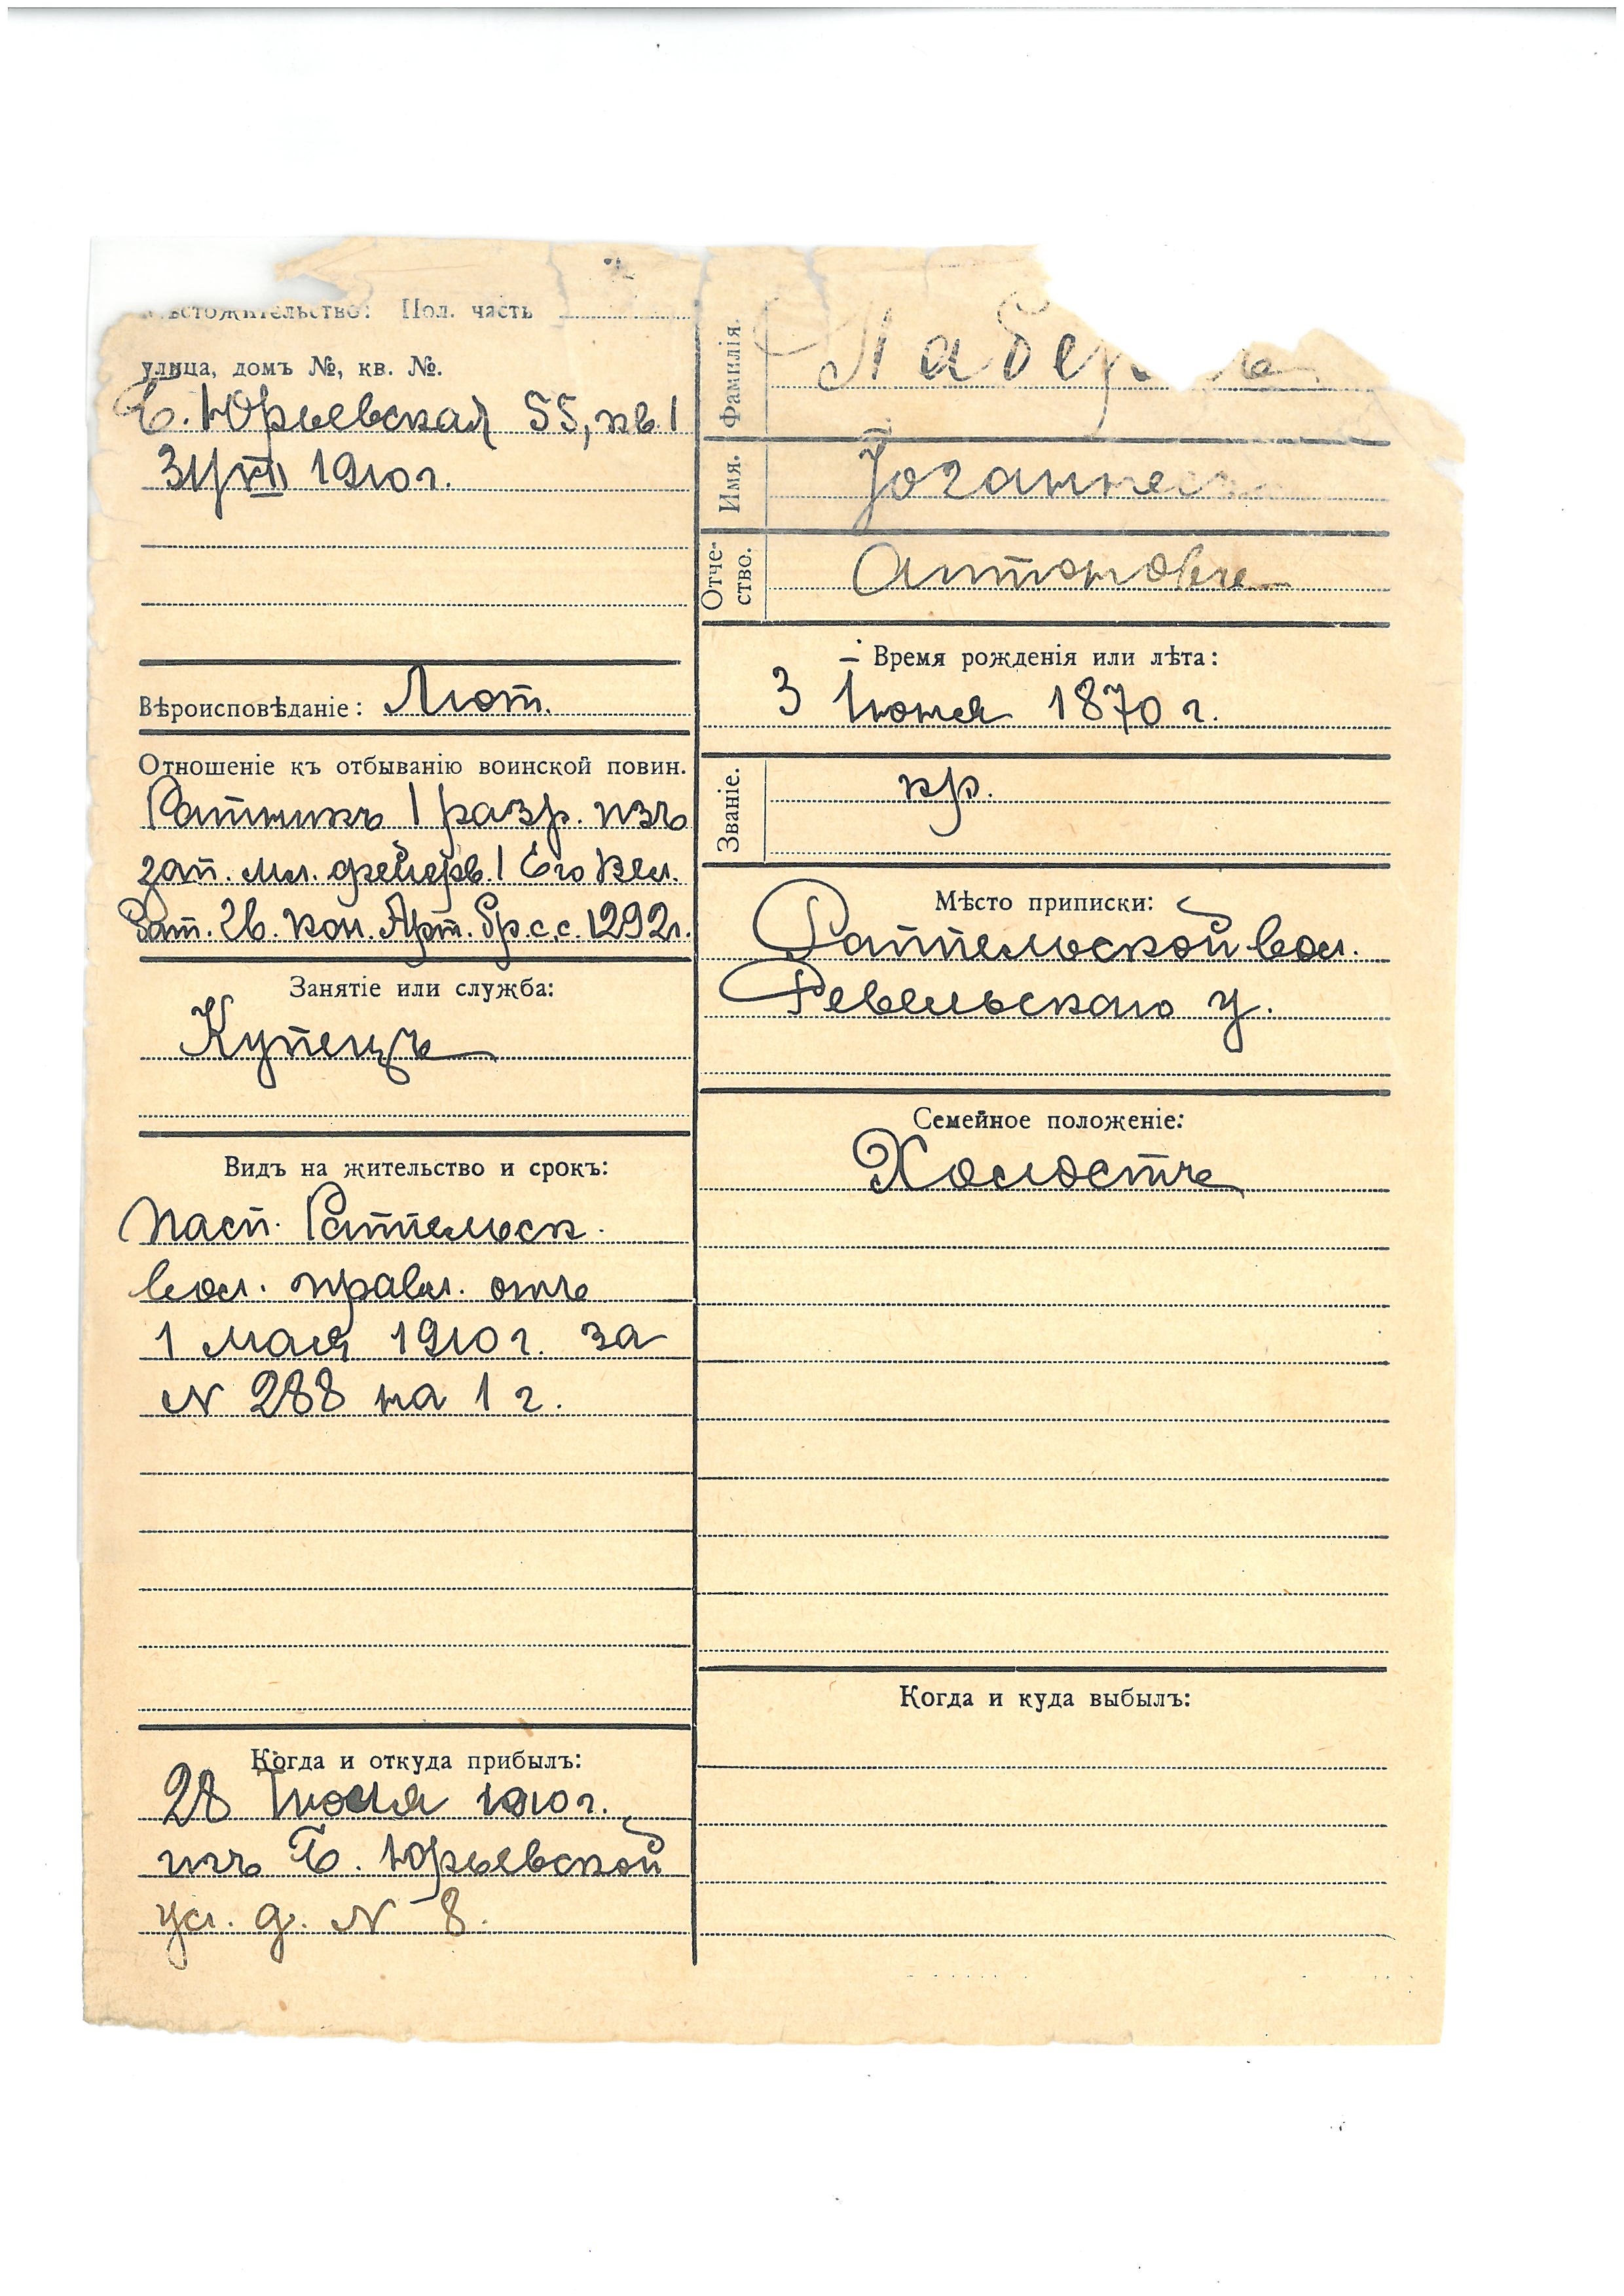 Мѣстожительство: Пол. часть
улица, домъ №, кв. №.
Б. Юрьевская 55, кв. 1
31/XII 1910 г.
Вѣроисповѣданіе: Лют.
Отношеніе къ отбыванію воинской повин.
Ратникъ 1 разр. изъ
зап. мл. фейерв. 1 Его Вел.
Бат. Гв. Кон. Арт. Бр. с. с. 1292 г.
Занятіе или служба:
Купецъ
Видъ на жительство и срокъ:
Пасп. Раппельск.
вол. правл. отъ
1 мая 1910 г. за
N 288 на 1 г.
Когда и откуда прибылъ:
28 Іюля 1910 г.
изъ Б. Юрьевской
ул. д. N 8.
Фамилія.
Имя. Іоганнесъ
Отче-
ство. Антоновъ
Время рожденія или лѣта:
3 Іюня 1870 г.
Званіе. кр.
Мѣсто приписки:
Раппельской вол.
Ревельскаго у.
Семейное положеніе:
Холостъ
Когда и куда выбылъ: